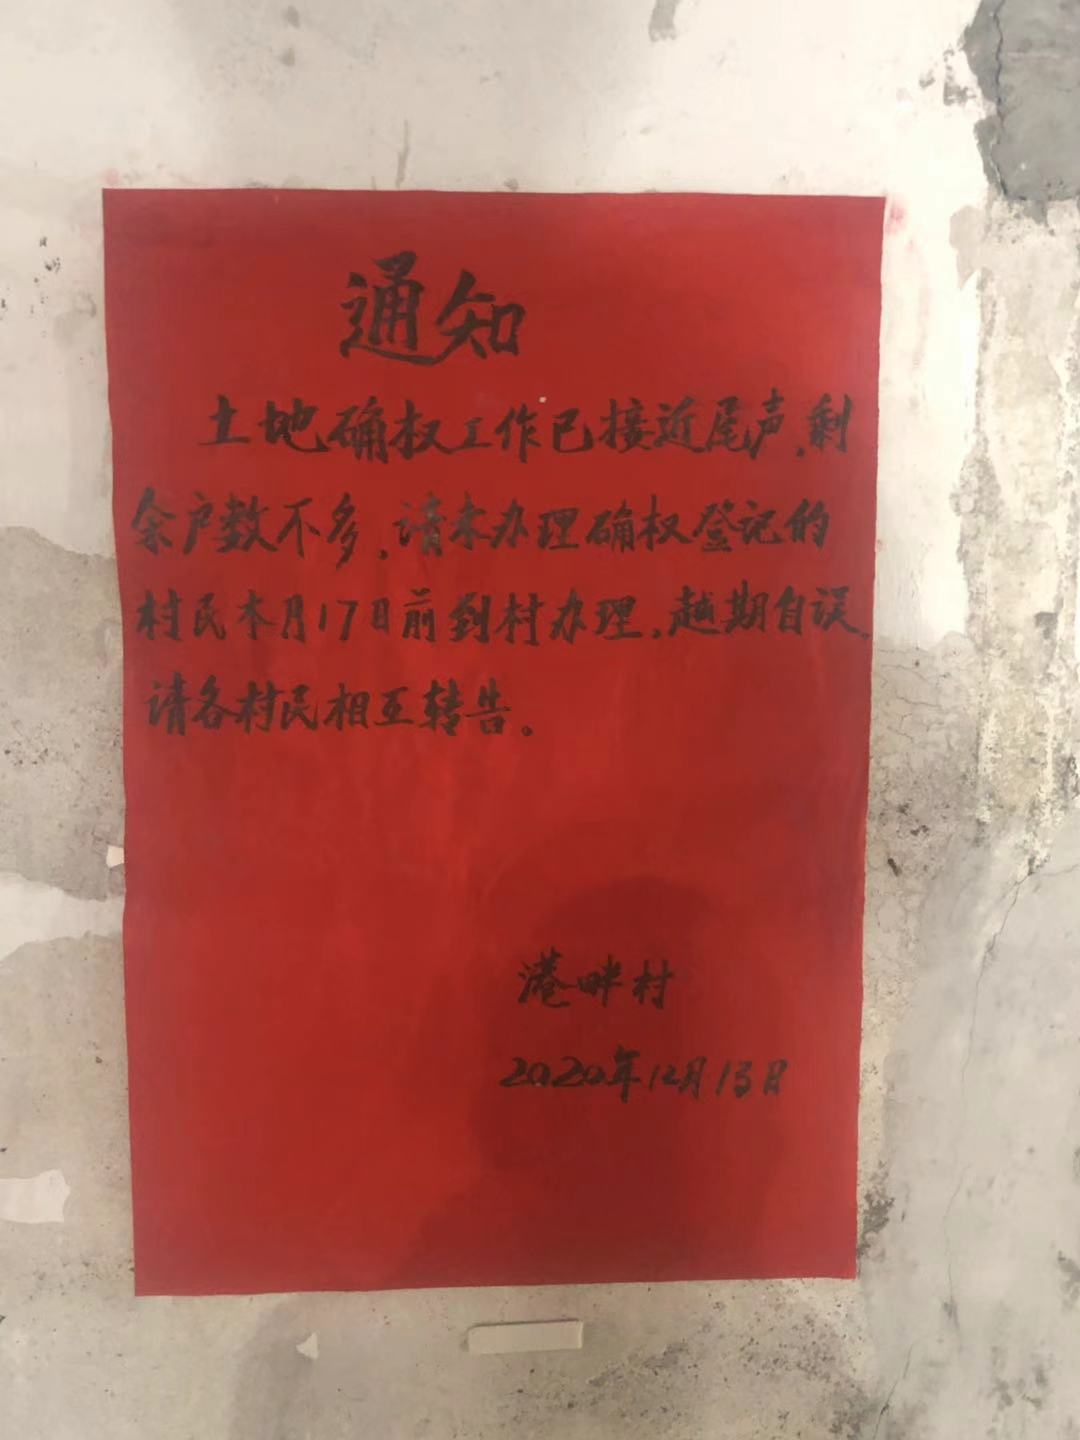 通知
土地确权工作已接近尾声，剩
余户数不多，请未办理确权登记的
村民本月17日前到村办理，越期自误，
请各村民相互转告。
港畔村
2020年12月13日